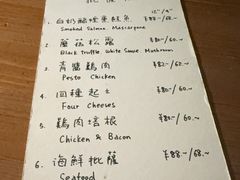 12"/9"
1. 白奶醬燻鮭魚 ¥88-/68.~
Smoked Salmon Mascarpone
2. 蘑菇松露 ¥80-/60.~
Black Truffle White Sauce Mushroom
3. 青醬鷄肉 ¥80-/60.~
Pesto Chicken
4. 四種起士 ¥80-/60.~
Four Cheeses
5. 鷄肉培根 ¥80-/60.~
Chicken & Bacon
6. 海鮮批薩 ¥88-/68.~
Seafood